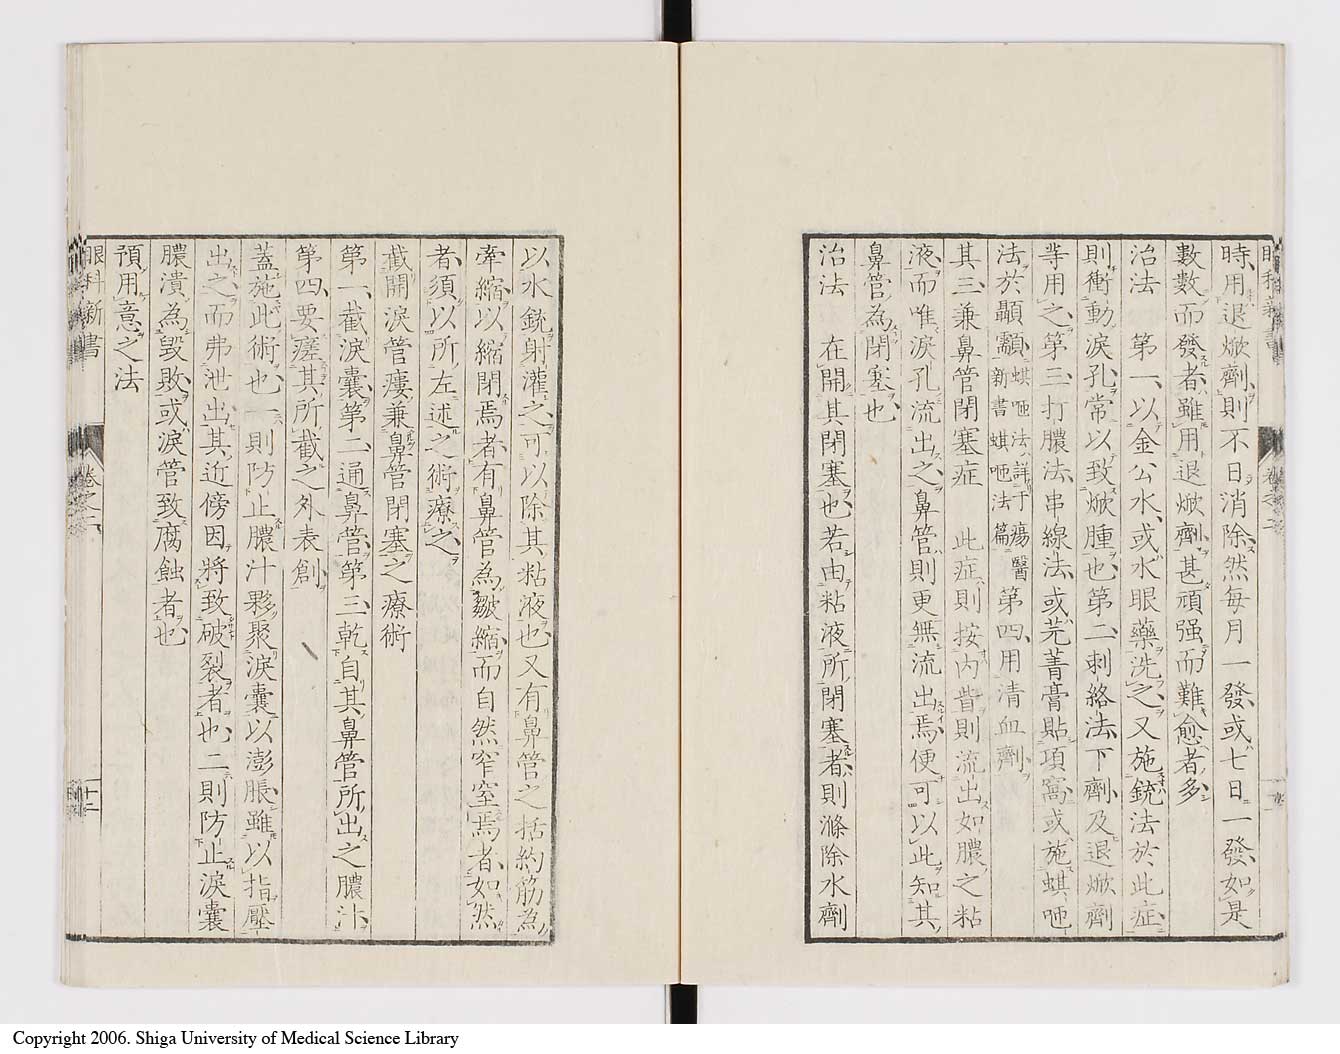 時用退焮劑則不日消除然每月一發或七日一發如是
數數而發者雖用退焮劑甚頑强而難愈者多
治法　第一以金公水或水眼藥洗之又施銃法於此症
則衝動淚孔常以致焮腫也第二刺絡法下劑及退焮劑
等用之第三打膿法串線法或芫菁膏貼項窩或施蜞咂
法於顳顬蜞咂法詳于瘍醫新書蜞咂法篇第四用清血劑
其三兼鼻管閉塞症　此症則按內眥則流出如膿之粘
液而唯淚孔流出之鼻管則更無流出焉便可以此知其
鼻管為閉塞也
治法　在開其閉塞也若由粘液所閉塞者則滌除水劑
以水銃射灌之可以除其粘液也又有鼻管之括約筋為
牽縮以縮閉焉者有鼻管為皺縮而自然窄窒焉者如然
者須以所左述之術療之
截開淚管瘻兼鼻管閉塞之療術
第一截淚囊第二通鼻管第三乾自其鼻管所出之膿汁
第四要瘥其所截之外表創
蓋施此術也一則防止膿汁夥聚淚囊以澎脹雖以指壓
出之而弗泄出其近傍因將致破裂者也二則防止淚囊
膿潰為毀敗或淚管致腐蝕者也
預用意之法
眼科新書　卷之　十二
Copyright 2006. Shiga University of Medical Science Library